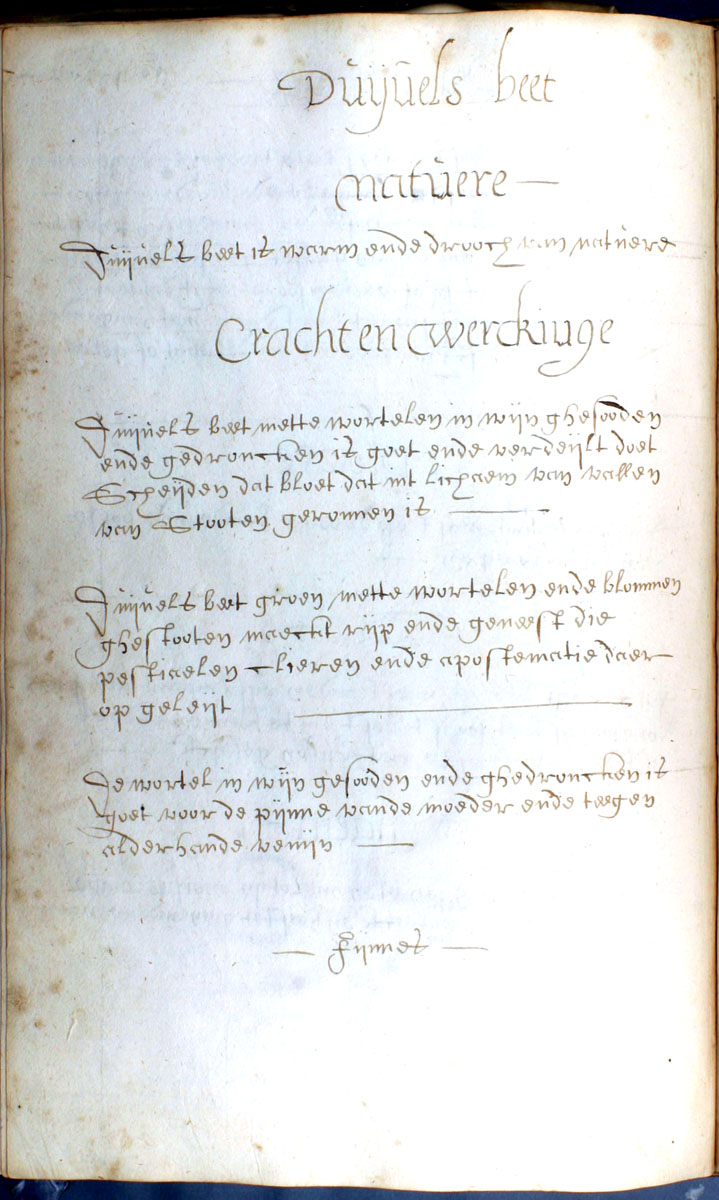 Duijvels beet
natuere
Duijvels beet is warm ende drooch van natuere
Cracht en werckinge
Duijvels beet mette wortelen in wijn ghesooden
ende gedroncken is goet ende verdeijlt doet
Scheijden dat bloet dat int lichaem van vallen
van Stooten geronnen is
Duijvels beet groen mette wortelen ende blommen
ghestooten maeckt rijp ende geneest die
pestiaelen clieren ende apostematie daer
op geleijt
De wortel in wijn gesooden ende ghedroncken is
goet voor de pijnne vande moeder ende teegen
alderhande venijn
Fijnnes